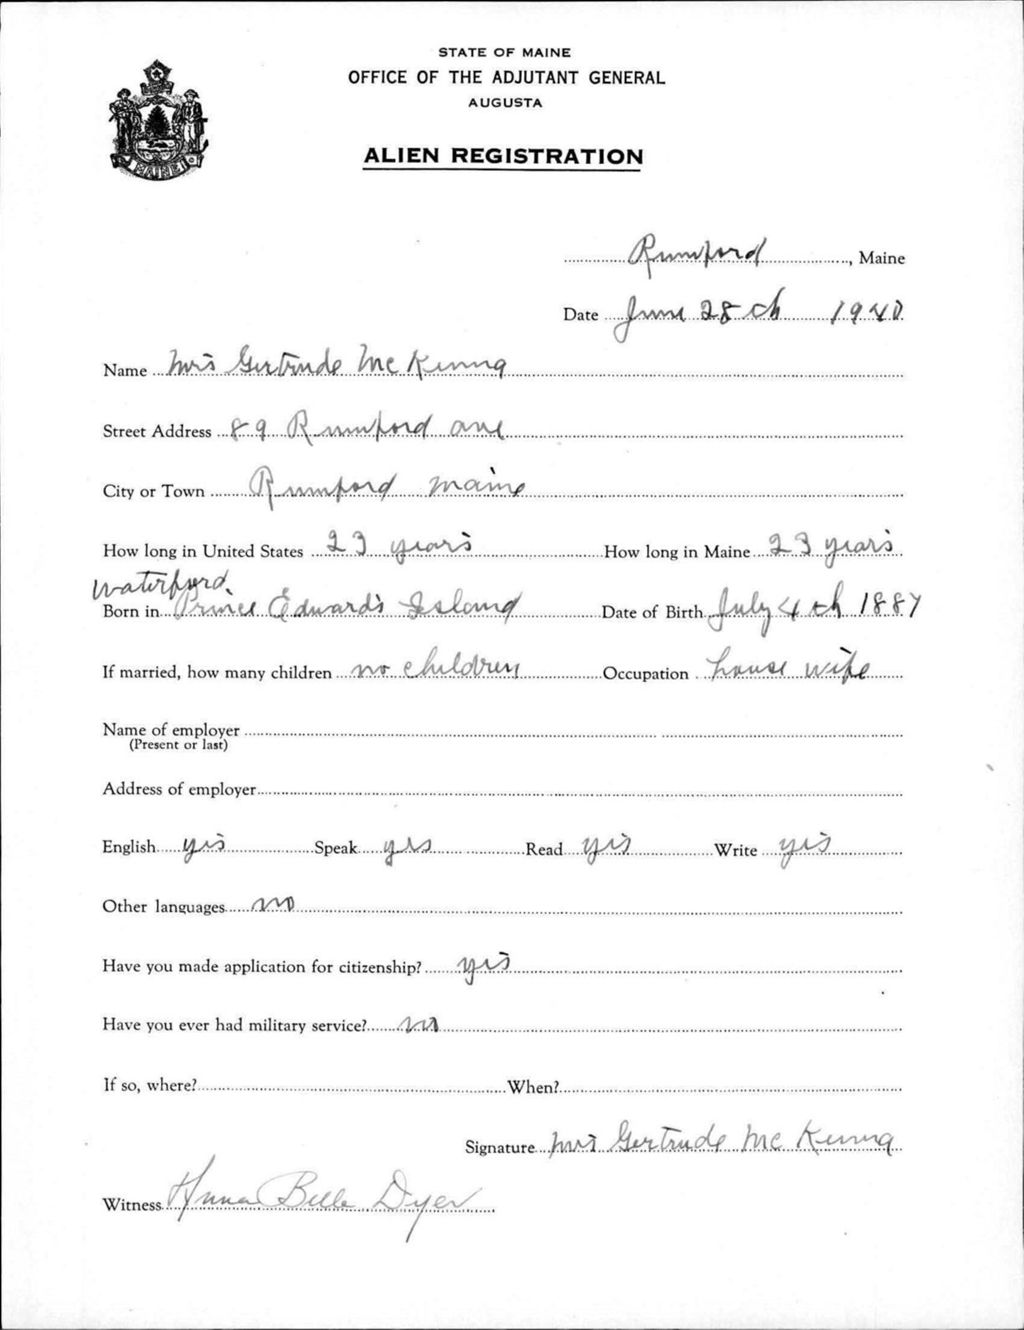 STATE OF MAINE
OFFICE OF THE ADJUTANT GENERAL
AUGUSTA
ALIEN REGISTRATION
MAINE
Rumford, Maine
Date June 28th 1940
Name Mrs Gertrude McKenna
Street Address 89 Rumford ave
City or Town Rumford Maine
How long in United States 23 years How long in Maine 23 years
Waterford
Born in Prince Edwards Island Date of Birth July 4th 1887
If married, how many children no children Occupation house wife
Name of employer
(Present or last)
Address of employer
English yes Speak yes Read yes Write yes
Other languages no
Have you made application for citizenship? yes
Have you ever had military service? no
If so, where? When?
Signature Mrs Gertrude McKenna
Witness Anna Belle Dyer